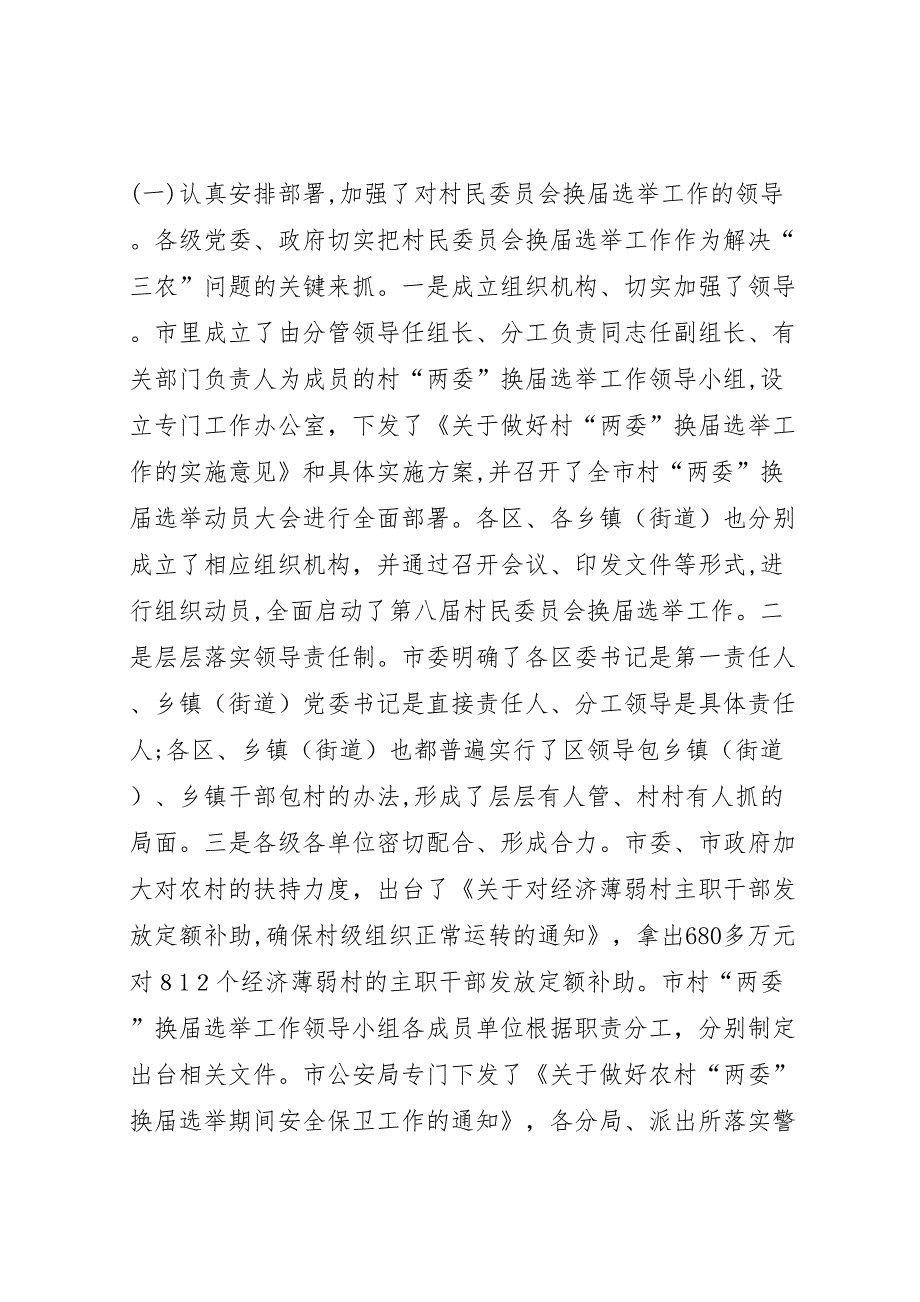 (一)认真安排部署,加强了对村民委员会换届选举工作的领导
。各级党委、政府切实把村民委员会换届选举工作作为解决“
三农”问题的关键来抓。一是成立组织机构、切实加强了领导
。市里成立了由分管领导任组长、分工负责同志任副组长、有
关部门负责人为成员的村“两委”换届选举工作领导小组,设
立专门工作办公室，下发了《关于做好村“两委”换届选举工
作的实施意见》和具体实施方案,并召开了全市村“两委”换
届选举动员大会进行全面部署。各区、各乡镇（街道）也分别
成立了相应组织机构，并通过召开会议、印发文件等形式,进
行组织动员,全面启动了第八届村民委员会换届选举工作。二
是层层落实领导责任制。市委明确了各区委书记是第一责任人
、乡镇（街道）党委书记是直接责任人、分工领导是具体责任
人;各区、乡镇（街道）也都普遍实行了区领导包乡镇（街道
）、乡镇干部包村的办法,形成了层层有人管、村村有人抓的
局面。三是各级各单位密切配合、形成合力。市委、市政府加
大对农村的扶持力度，出台了《关于对经济薄弱村主职干部发
放定额补助,确保村级组织正常运转的通知》，拿出680多万元
对８１２个经济薄弱村的主职干部发放定额补助。市村“两委
”换届选举工作领导小组各成员单位根据职责分工，分别制定
出台相关文件。市公安局专门下发了《关于做好农村“两委”
换届选举期间安全保卫工作的通知》，各分局、派出所落实警